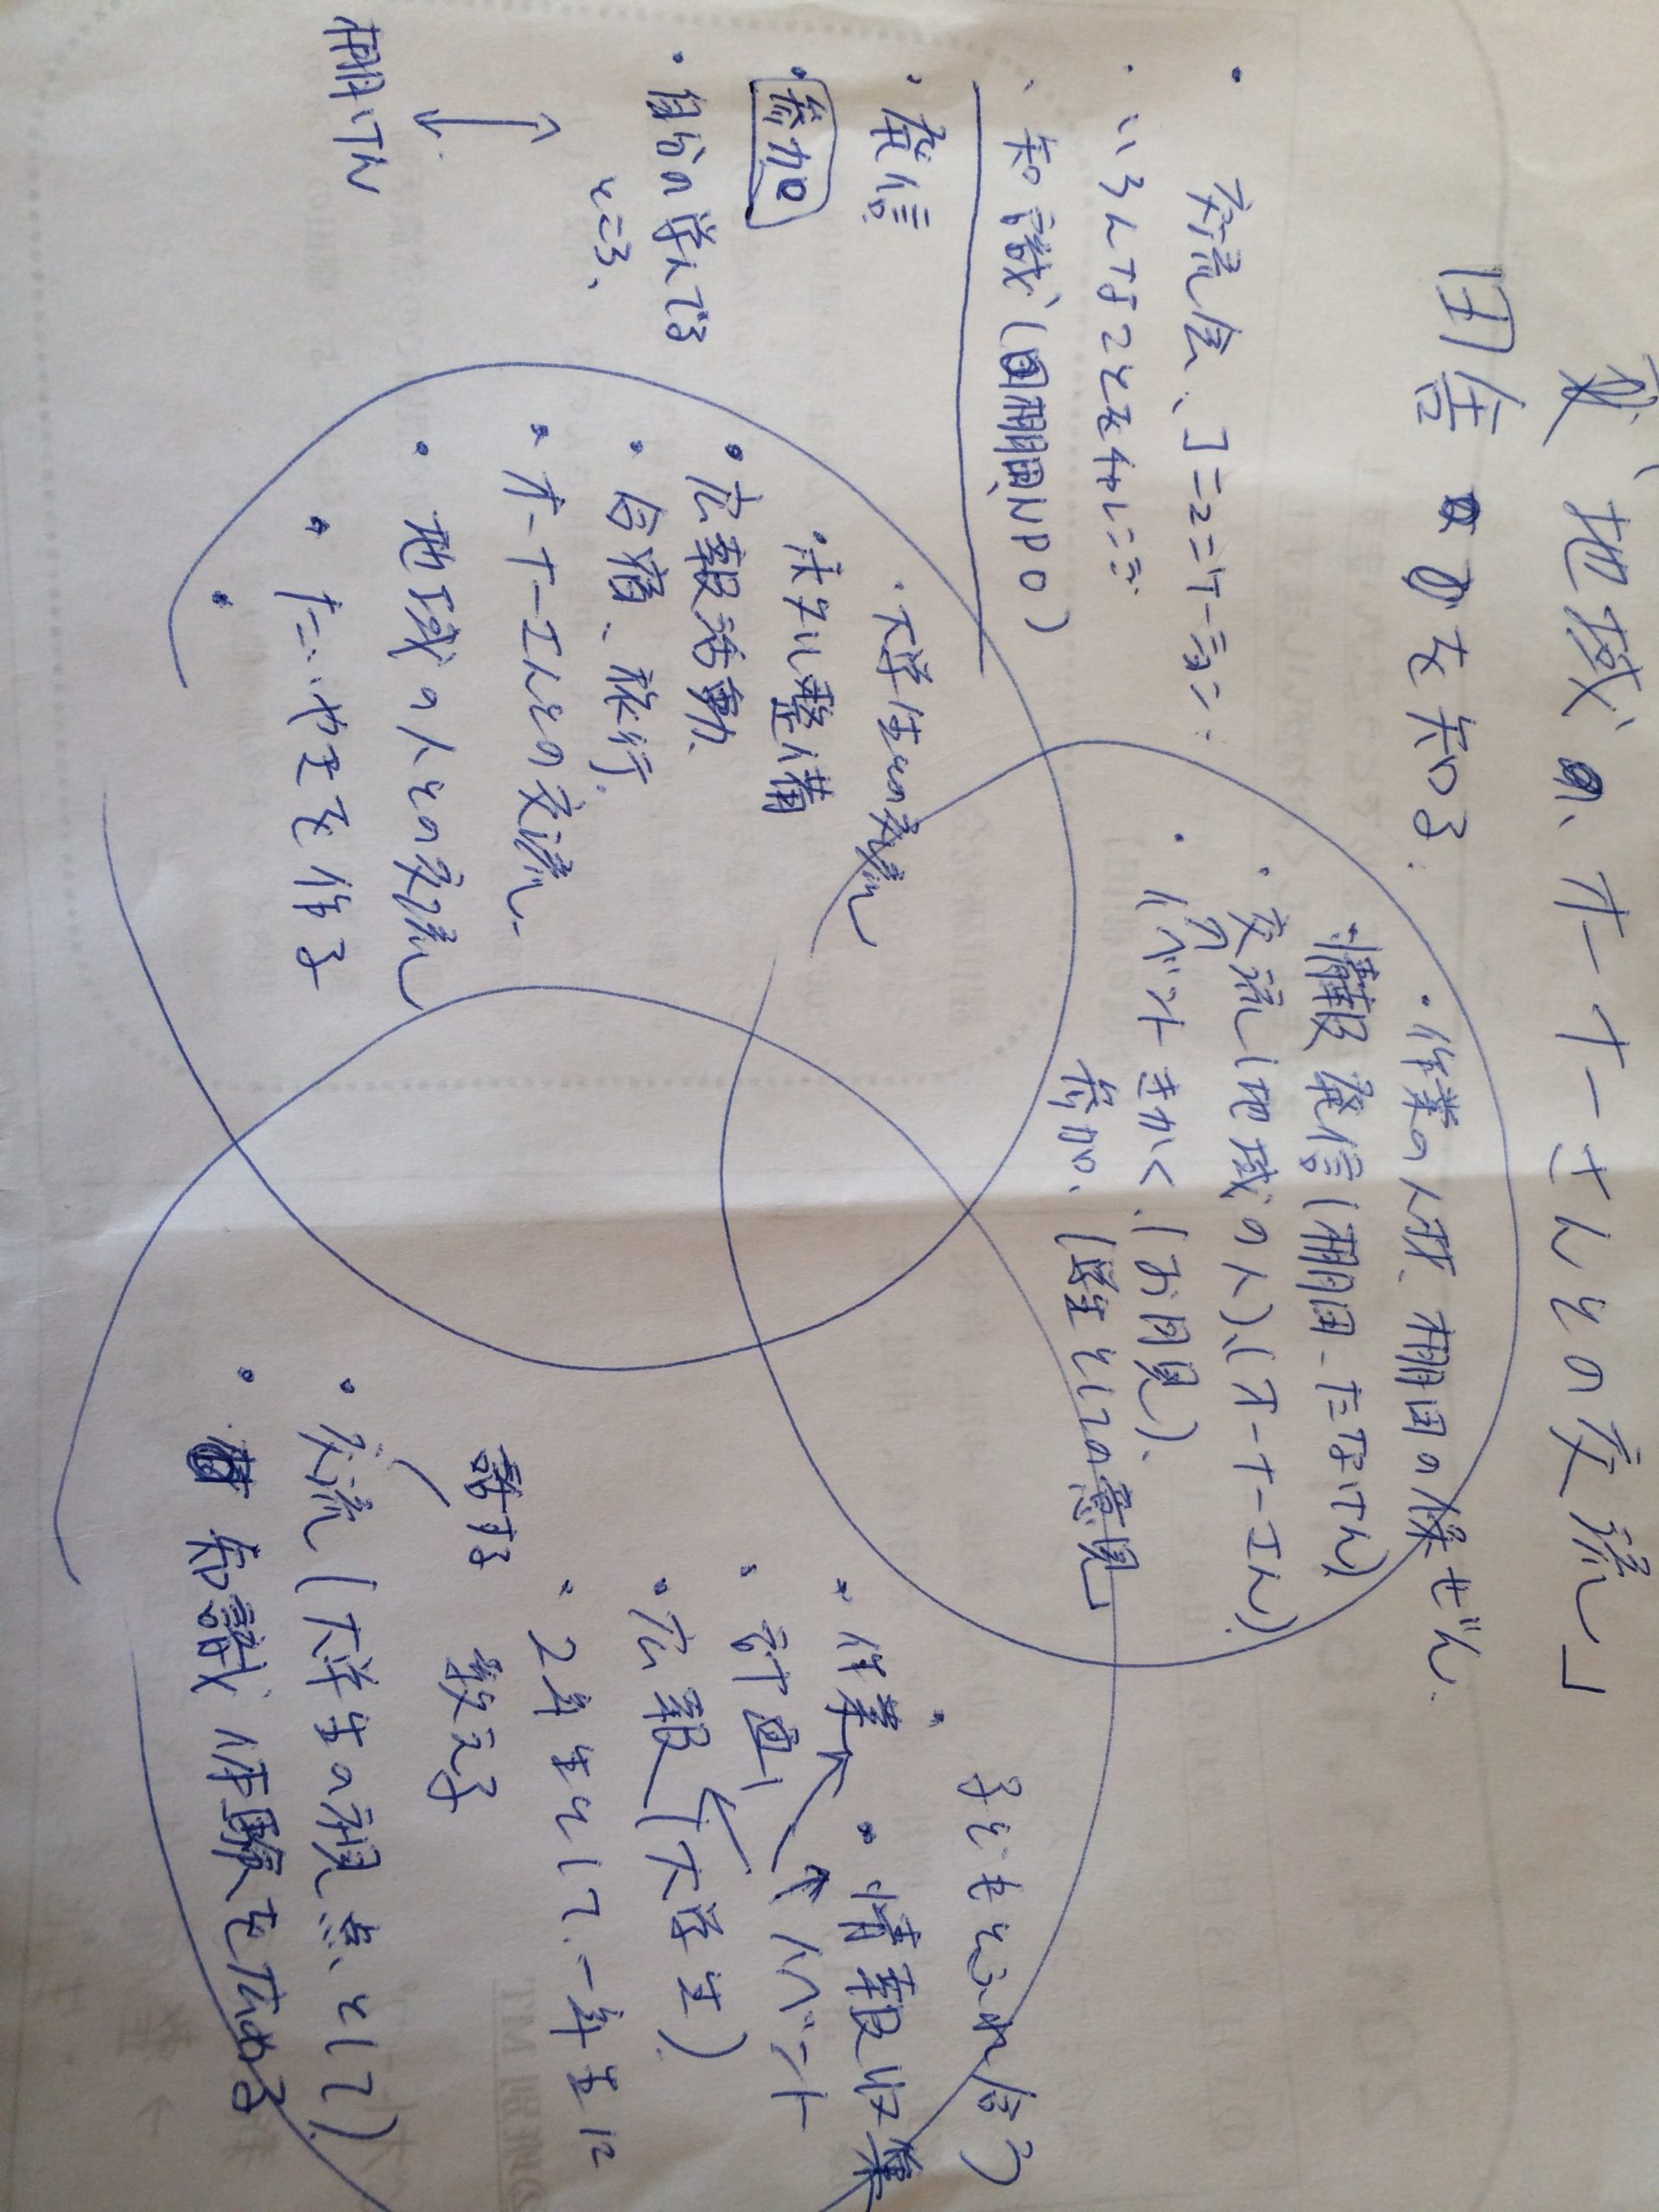 地域の、オーナーさんとの交流」
田舎を知る.
・作業の人形、棚田の保ぜん.
・情報発信(棚田-たなけん)
・交流(地域の人)、(オーナーエん)
・イベントきかく、(お月見)、
参加、(学生としての意見)
交流会、
・いろんなことを
・知識(田棚田NPO)
・発信
・参加
・自分の学んでる
ところ、
棚けん
・大学生との交流
・整備
・広報活動、
・合宿、旅行.
・オーナーエんとの交流.
・地域の人との交流
・たいやきを作る
・子どもとふれ合う
・情報収集
・作業
・イベント
・計画
・広報(大学生)
・2年生として、一年生に
教える
話する
・交流(大学生の視点として)
・知識 体験を広める